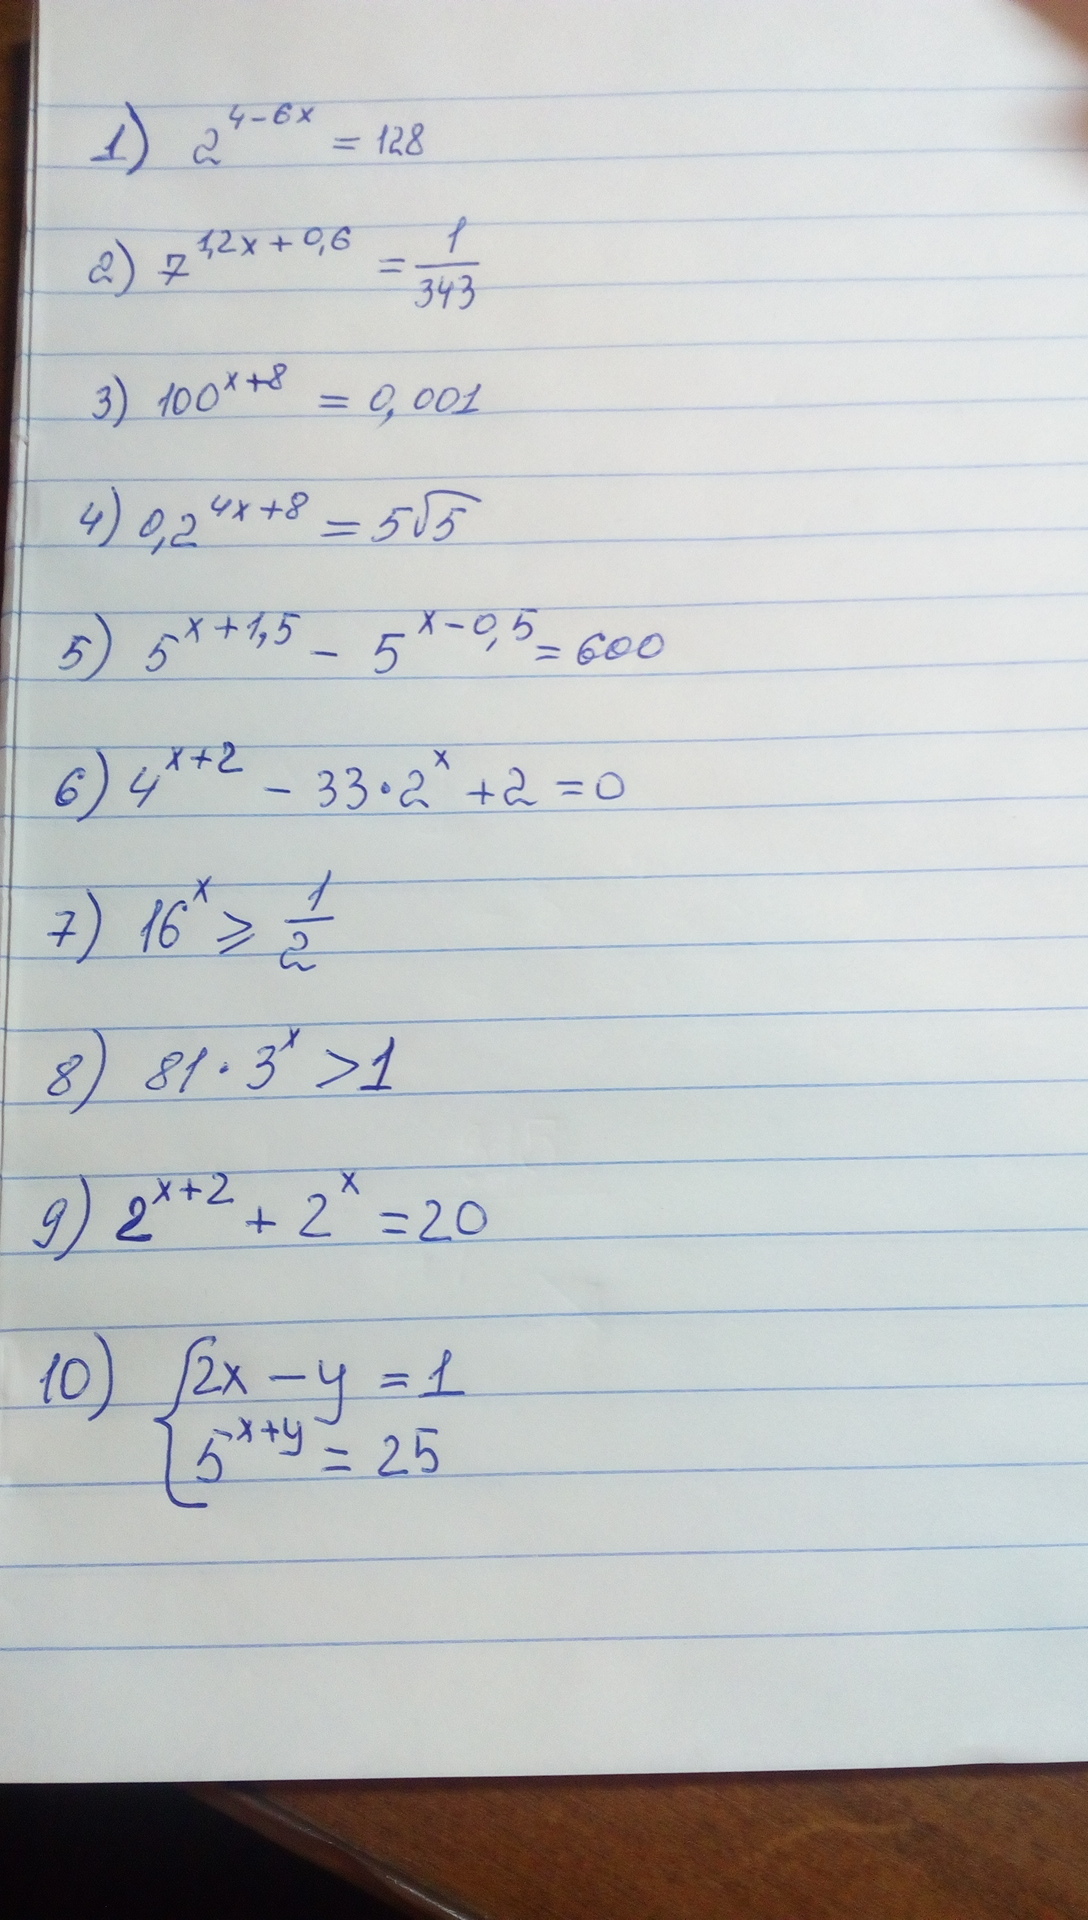 1) 2^{4-6x} = 128
2) 7^{1,2x+0,6} = \frac{1}{343}
3) 100^{x+8} = 0,001
4) 0,2^{4x+8} = 5√5
5) 5^{x+1,5} - 5^{x-0,5} = 600
6) 4^{x+2} - 33·2^{x} + 2 = 0
7) 16^{x} ⩾ \frac{1}{2}
8) 81·3^{x} > 1
9) 2^{x+2} + 2^{x} = 20
10) { 2x - y = 1
5^{x+y} = 25